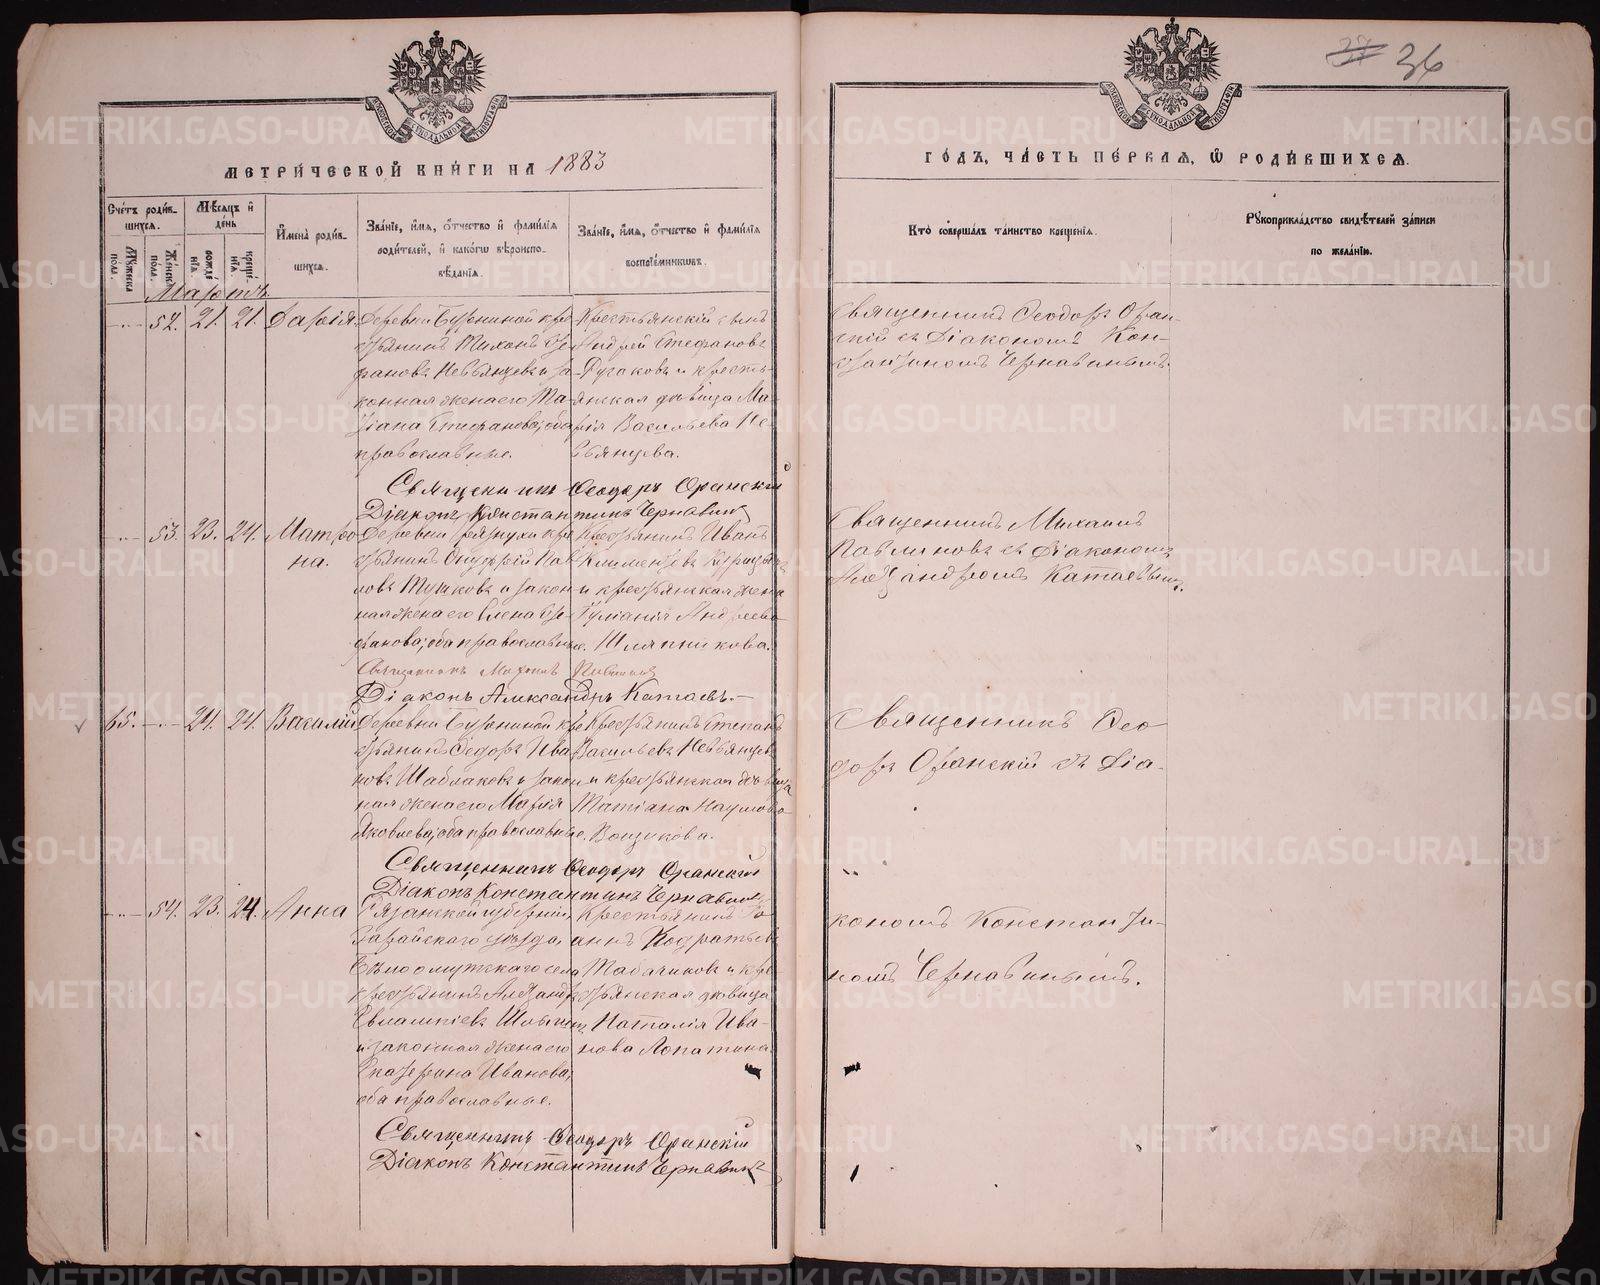 МЕТРИЧЕСКОЙ КНИГИ НА 1883
ГОДЪ, ЧАСТЬ ПЕРВАЯ, Ѿ РОДИВШИХСЯ.
36
Счетъ родив-
шихся.
Мужеска
пола.
Женска
пола.
Мѣсяцъ и
день
рожде
нія.
креще-
нія.
Имена родив-
шихся.
Званіе, имя, отчество и фамилія
родителей, и какогω вѣроиспо-
вѣданія.
Званіе, имя, отчество и фамилія
воспріемниковъ.
Кто совершалъ таинство крещенія.
Рукоприкладство свидѣтелей записи
по желанію.
Мартъ.
52. 21. 21. Дарія
Деревни Бурниной кре
стьянинъ Тихонъ Сте
фановъ Невьянцевъ и за-
конная жена его Та-
тіана Стефанова; оба
православные.
Крестьянскій сынъ
Андрей Стефановъ
Пугаковъ и кресть-
янская дѣвица Ма-
рія Васильева Не-
вьянцева.
Священникъ Ѳеодоръ Оран-
скій съ Діакономъ Кон-
стантиномъ Чернавинымъ.
Священникъ Ѳеодоръ Оранскій
Діаконъ Константинъ Чернавинъ
53. 23. 24. Матро
на.
Деревни Рязнухи кре
стьянинъ Онуфрій Пав
ловъ Тушковъ и закон
ная жена его Елена Сте
фанова; оба православные.
Крестьянинъ Иванъ
Климентовъ
и крестьянская жена
Іуліанія Андреева
Шляпникова.
Священникъ Михаилъ
Павлиновъ съ Діакономъ
Александромъ Катаевымъ.
Священникъ Михаилъ Павлиновъ
Діаконъ Александръ Катаевъ.
65. 24. 24. Василій
Деревни Бурниной кре
стьянинъ Ѳедоръ Ива
новъ Шаблаковъ и закон
ная жена его Марія
Яковлева; оба православные.
Крестьянинъ Степанъ
Васильевъ Невьянцевъ
и крестьянская дѣвица
Татіана Наумова
Вощикова.
Священникъ Ѳео
доръ Оранскій съ Діа-
Священникъ Ѳеодоръ Оранскій
Діаконъ Константинъ Чернавинъ
54. 23. 24. Анна
Рязанской губерніи
Зарайскаго уѣзда,
Бѣлоомутскаго села
крестьянинъ Александръ
Евлампіевъ
и законная жена его
Екатерина Иванова;
оба православные.
Крестьянинъ Іо
аннъ Кодратьевъ
Табачиковъ и кре
стьянская дѣвица
Наталія Ива-
нова Лопатина
кономъ Константи-
номъ Чернавинымъ.
Священникъ Ѳеодоръ Оранскій
Діаконъ Константинъ Чернавинъ
METRIKI.GASO-URAL.RU